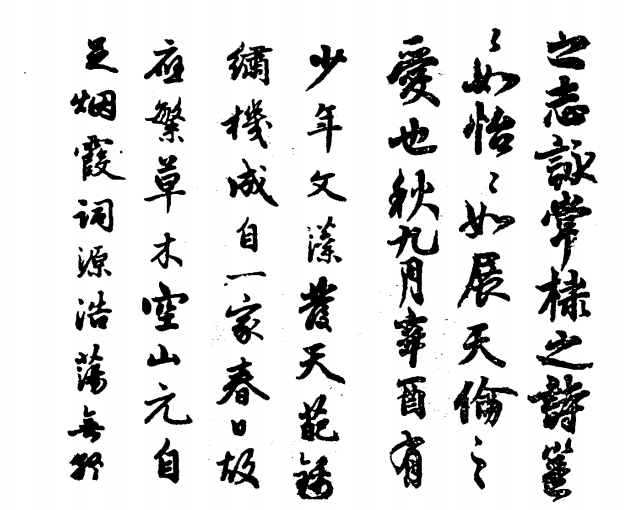 之志詠常棣之詩豈
〻如怡〻如展天倫之
愛也秋九月辛酉有
少年文藻發天葩錦
繡機成自一家春日故
應繁草木空山元自
足烟霞詞源浩蕩無